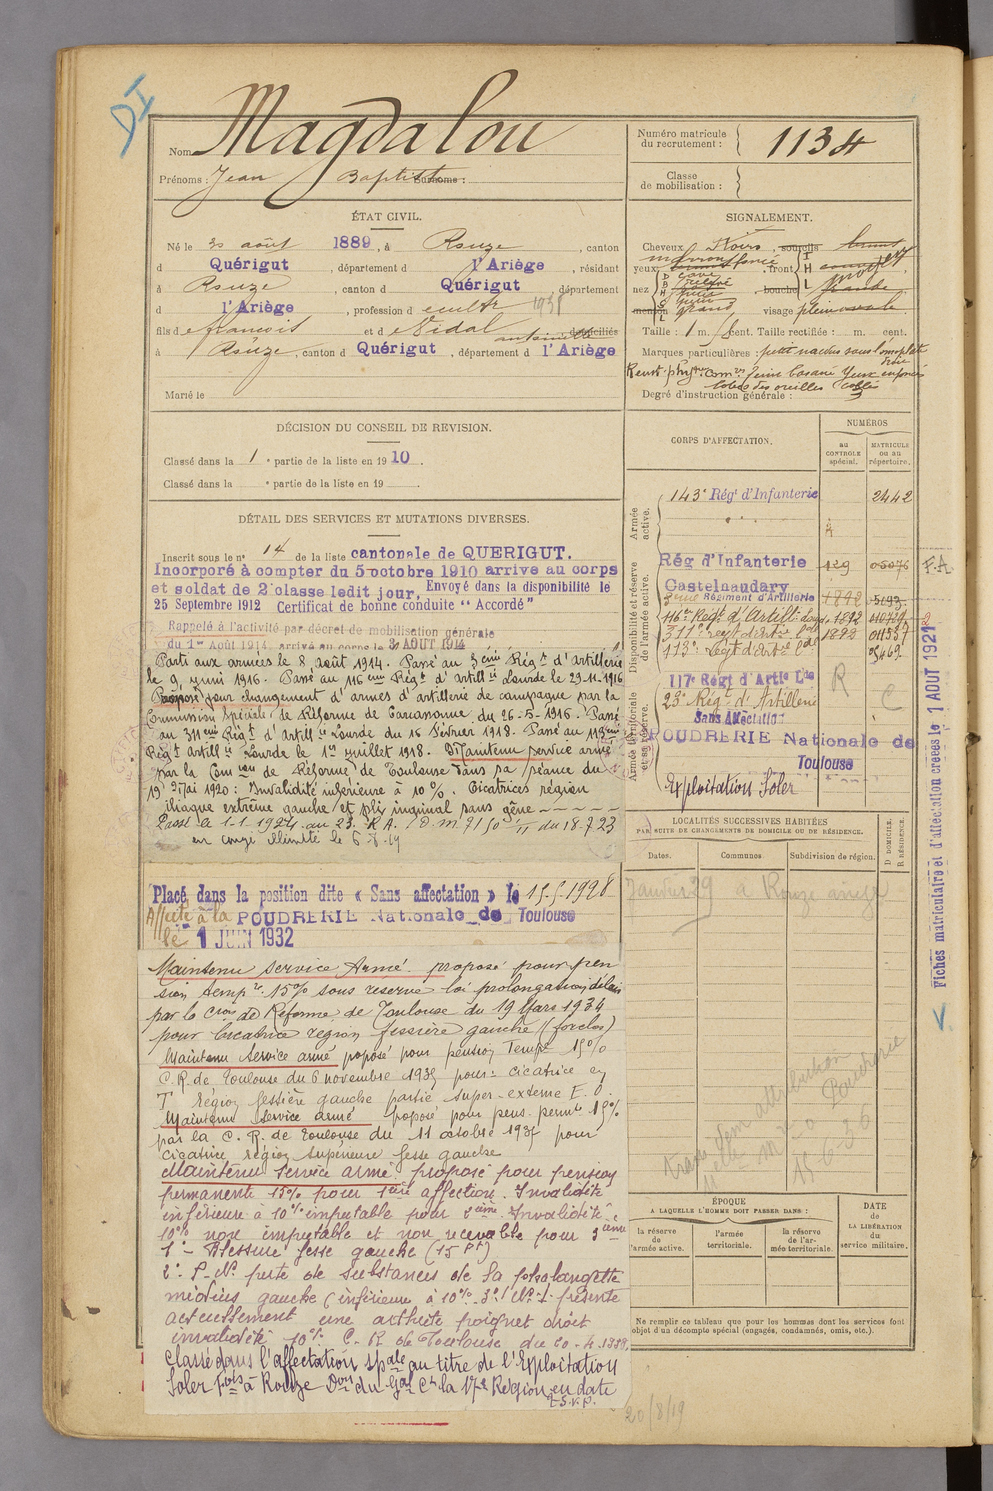 DI
Nom Magdalou
Prénoms : Jean Baptiste Surnoms :
Numéro matricule du recrutement : 1134
Classe de mobilisation :
ÉTAT CIVIL.
Né le 20 août 1889, à Rouze, canton
d Quérigut, département d l'Ariège, résidant
à Rouze, canton d Quérigut, département
d l'Ariège, profession d cultr 1938
fils de François et de Vidal antoinette domiciliés
à Rouze, canton d Quérigut, département d l'Ariège
Marié le
SIGNALEMENT.
Cheveux Noirs, sourcils bruns
yeux marron foncé, front moyen
nez bouche grande
menton grand, visage plein ovale
Taille : 1 m. cent. Taille rectifiée : m. cent.
Marques particulières : petit naevus sous l'omoplate
droite
Renst. phys. com. Teint basané Yeux enfoncés
lobes des oreilles collés
Degré d'instruction générale : 3
DÉCISION DU CONSEIL DE REVISION.
Classé dans la 1e partie de la liste en 1910.
Classé dans la e partie de la liste en 19
DÉTAIL DES SERVICES ET MUTATIONS DIVERSES.
Inscrit sous le n° 14 de la liste cantonale de QUERIGUT.
Incorporé à compter du 5 octobre 1910 arrive au corps
et soldat de 2e classe ledit jour, Envoyé dans la disponibilité le
25 Septembre 1912 Certificat de bonne conduite "Accordé"
Rappelé à l'activité par décret de mobilisation générale
du 1er Août 1914, arrivé au corps le 3 AOUT 1914
Parti aux armées le 8 août 1914. Passé au 3eme Régt d'artillerie
le 9 juin 1916. Passé au 116eme Régt d'Artillie Lourde le 29-11-1916
Proposé pour changement d'armes d'artillerie de campagne par la
Commission Spéciale de Réforme de Carcassonne du 26-5-1916. Passé
au 311eme Régt d'Artillie Lourde du 16 février 1918. Passé au 113eme
Régt Artillie Lourde le 1er juillet 1918. Maintenu service armé
par la Comion de Réforme de Toulouse dans sa séance du
19 Mai 1920 : Invalidité inférieure à 10%. Cicatrices région
iliaque extrême gauche et pli inguinal sans gêne
Passé le 1-1-1924 au 23e R.A. (D.M. 7150 du 18-7-23
en congé illimité le 6-8-19
Placé dans la position dite « Sans affectation » le 15-5-1928
Affecté à la POUDRERIE Nationale de Toulouse
le 1 JUIN 1932
Maintenu service Armé. proposé pour pen
sion tempre 15% sous réserve loi prolongation délais
par la Cion de Réforme de Toulouse du 19 Mars 1934
pour cicatrice région fessière gauche (forclos)
Maintenu Service armé proposé pour pension Tempre 15%
C.R. de Toulouse du 6 novembre 1935 pour : cicatrice en
T région fessière gauche partie super-externe E.O.
Maintenu Service armé proposé pour pens. permte 15%
par la C.R. de Toulouse du 11 octobre 1937 pour
cicatrice région supérieure fesse gauche
Maintenu Service armé proposé pour pension
permanente 15% pour 1ere affection. Invalidité
inférieure à 10% imputable pour 2eme. Invalidité
10% non imputable et non recevable pour 3eme
1° - Blessure fesse gauche (15 pt)
2° P.No perte de substances de la phalangette
médius gauche (inférieure à 10%. 3° présente
actuellement une arthrite poignet droit
invalidité 10% C.R. de Toulouse du 20.4.1938
Classé dans l'affectation spale au titre de l'Exploitation
Soler Fois à Rouze Don du Gal Ct la 17e Région en date
T.S.V.P.
CORPS D'AFFECTATION.
NUMÉROS
au CONTROLE spécial.
MATRICULE ou au répertoire.
Armée active.
143e Régt d'Infanterie 2442
Disponibilité et réserve de l'armée active.
Rég d'Infanterie 129 05076
Castelnaudary
3eme Régiment d'Artillerie 1892 5193
116e Régt d'Artilie Lourde 1892
311e régt d'artie lde 1892 011537
113e régt d'artie lde
Armée territoriale et sa réserve.
117e Régt d'Artie Lde R
23e Régt d'Artillerie C
Sans Affectation
POUDRERIE Nationale de
Toulouse
Exploitation Soler
LOCALITÉS SUCCESSIVES HABITÉES
PAR SUITE DE CHANGEMENTS DE DOMICILE OU DE RÉSIDENCE.
Dates. Communes Subdivision de région. D DOMICILE. R RÉSIDENCE.
Janvier 29 à Rouze ariège
attribution
Poudrerie
15-6-36
ÉPOQUE
A LAQUELLE L'HOMME DOIT PASSER DANS :
la réserve de l'armée active.
l'armée territoriale.
la réserve de l'armée territoriale.
DATE de LA LIBÉRATION du service militaire.
Ne remplir ce tableau que pour les hommes dont les services font
objet d'un décompte spécial (engagés, condamnés, omis, etc.).
F.A.
Fiches matriculaire et d'affectation créées le 1 AOUT 1921
20/8/19